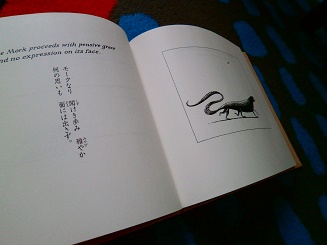 e Mork proceeds with pensive grace
nd no expression on its face.
モークなり 閑けき歩み 穏やか
何の思いも 面には出さず。